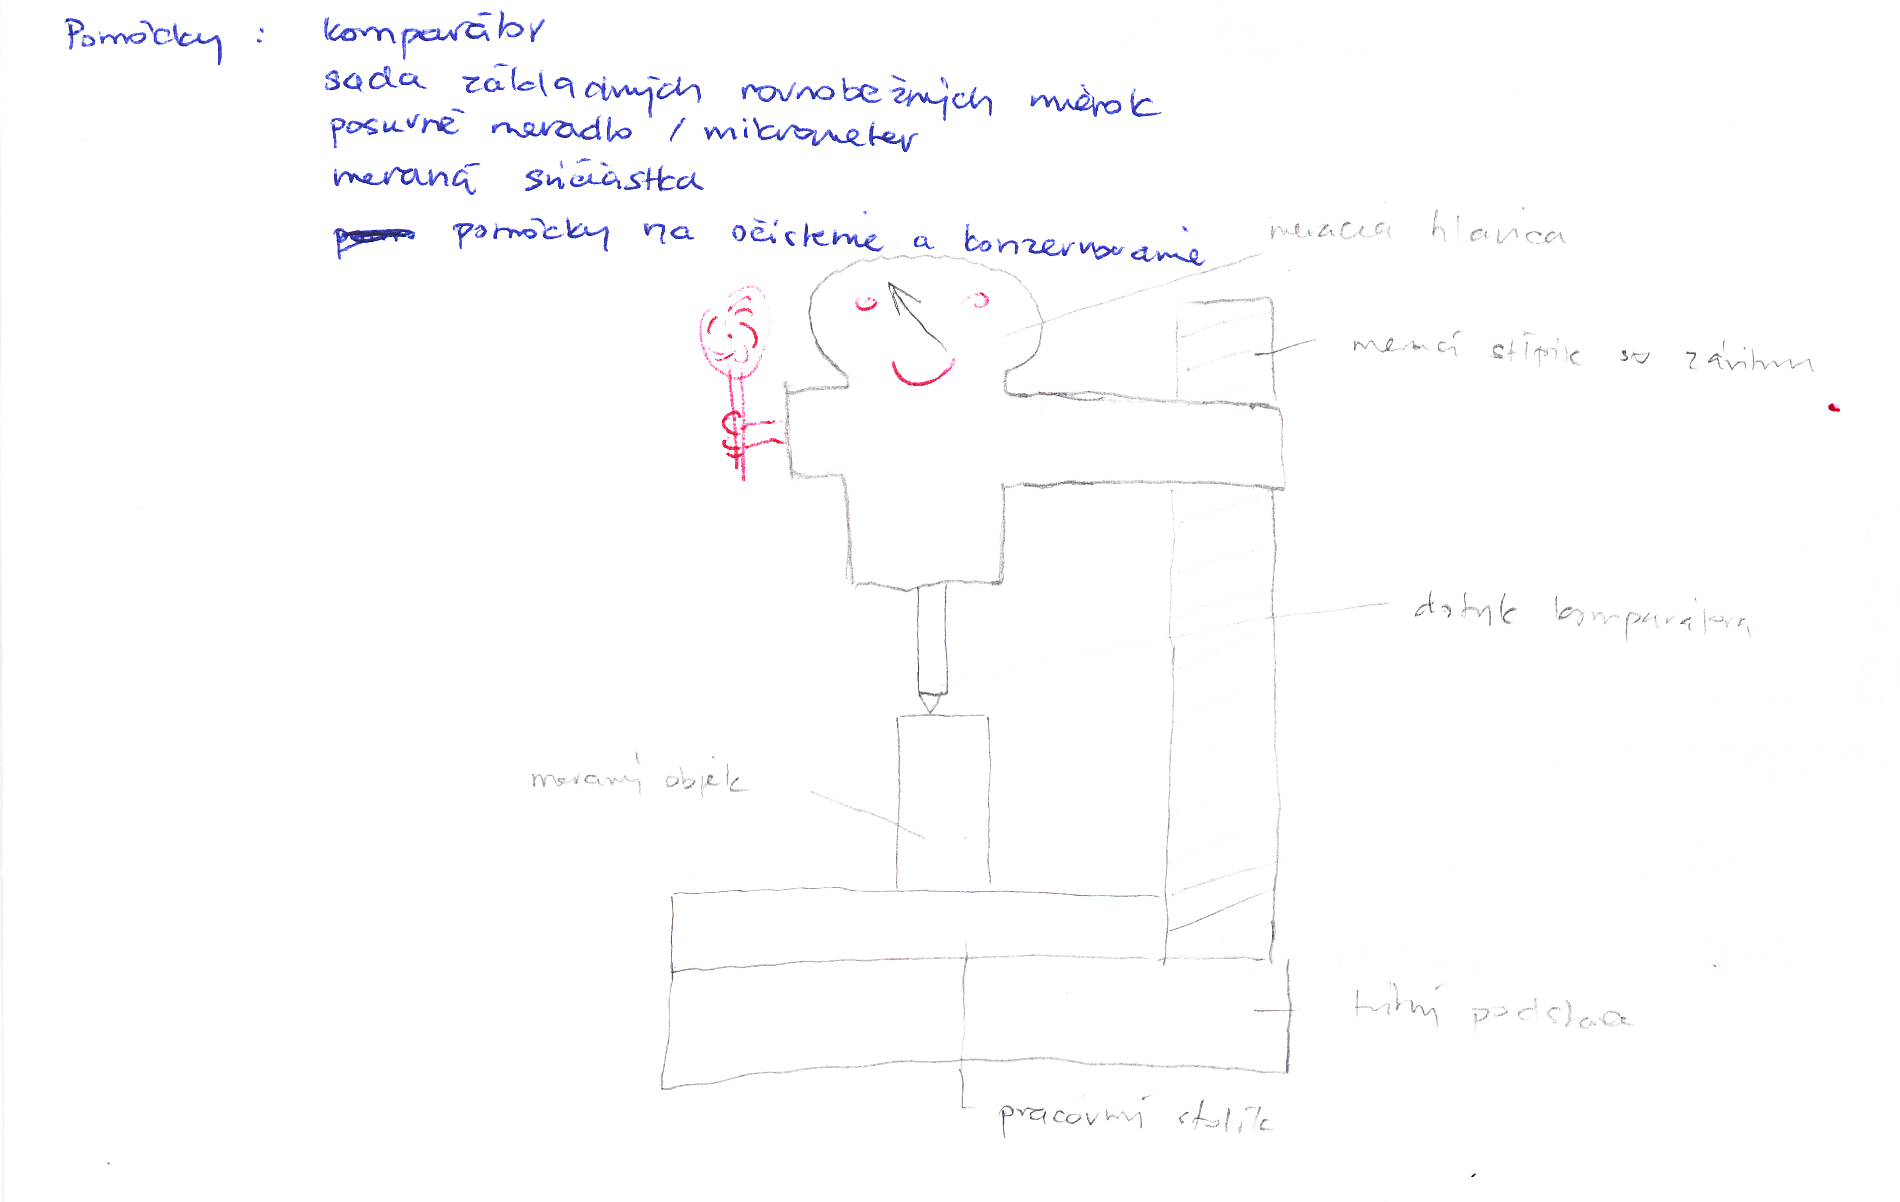 Pomôcky : komparátor
sada základných rovnobežných mierok
posuvné meradlo / mikrometer
meraná súčiastka
pomôcky na očistenie a konzervovanie
meracia hlavica
merací stĺpik so závitom
dotyk komparátora
meraný objek
tuhý podstava
pracovný stolík